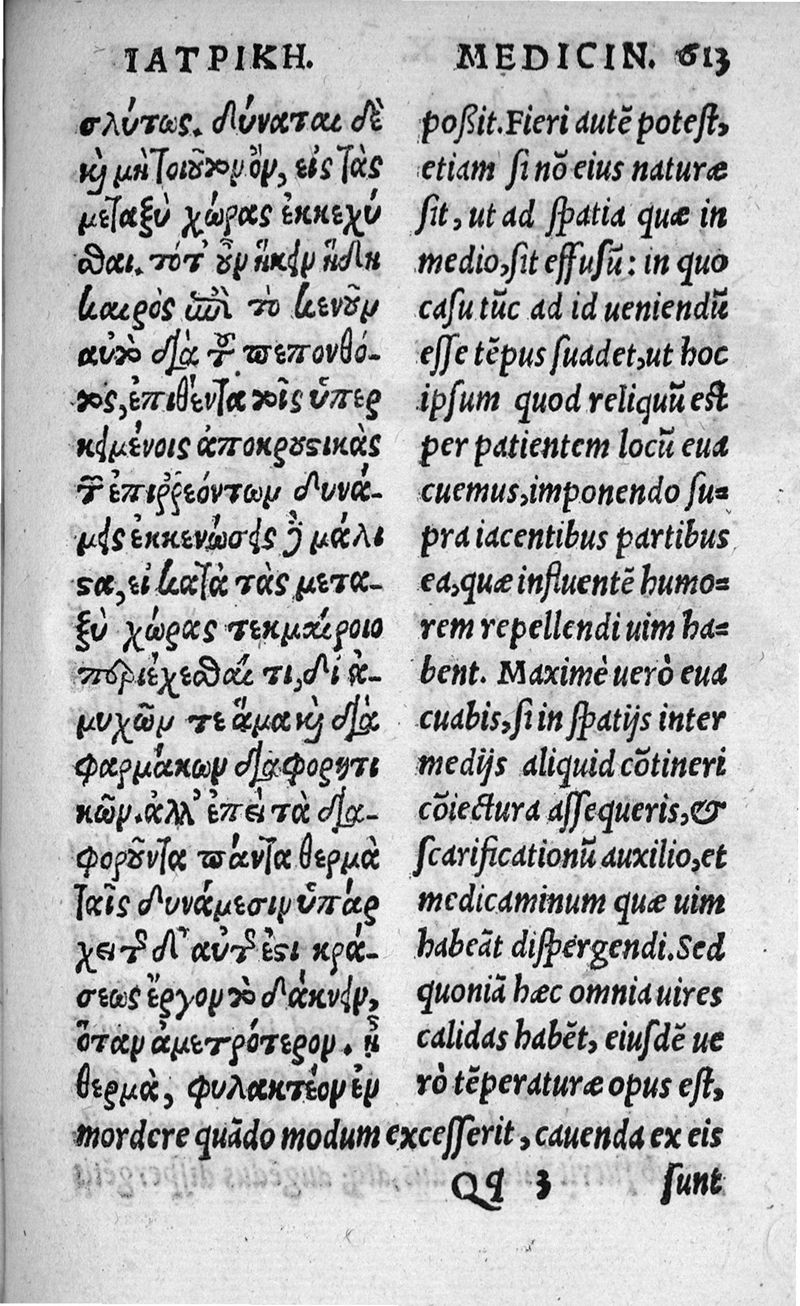 ΙΑΤΡΙΚΗ.
σλύτως. δύναται δὲ
καὶ μὴ τοιοῦτον ὂν, εἰς τὰς
μεταξὺ χώρας ἐκκεχύ
σθαι. τότ' οὖν ἥκειν ἤδη
καιρὸς ἐπὶ τὸ κενοῦν
αὐτὸ διὰ τοῦ πεπονθό-
τος, ἐπιθέντα τοῖς ὑπερ
κειμένοις ἀποκρουστικὰς
τῶν ἐπιρρεόντων δυνά-
μεις ἐκκενώσεις δὲ μάλι
στα, εἰ κατὰ τὰς μετα-
ξὺ χώρας τεκμαίροιο
περιέχεσθαί τι, δι' ἀ-
μυχῶν τε ἅμα καὶ διὰ
φαρμάκων διαφορητι
κῶν. ἀλλ' ἐπεὶ τὰ δια-
φοροῦντα πάντα θερμὰ
ταῖς δυνάμεσιν ὑπάρ
χει τῆς δ' αὐτῆς ἐστι κρά-
σεως ἔργον τὸ δάκνειν,
ὅταν ἀμετρότερον. ᾖ
θερμὰ, φυλακτέον ἐν
MEDICIN. 613
poßit. Fieri autē potest,
etiam si nō eius naturæ
sit, ut ad spatia quæ in
medio, sit effusū: in quo
casu tūc ad id ueniendū
esse tēpus suadet, ut hoc
ipsum quod reliquū est
per patientem locū eua
cuemus, imponendo su=
pra iacentibus partibus
ea, quæ influentē humo=
rem repellendi uim ha=
bent. Maximè uerò eua
cuabis, si in spatijs inter
medijs aliquid cōtineri
cōiectura assequeris, &
scarificationū auxilio, et
medicaminum quæ uim
habeāt dispergendi. Sed
quoniā hæc omnia uires
calidas habēt, eiusdē ue
rò tēperaturæ opus est,
mordere quādo modum excesserit, cauenda ex eis
Qq 3 sunt